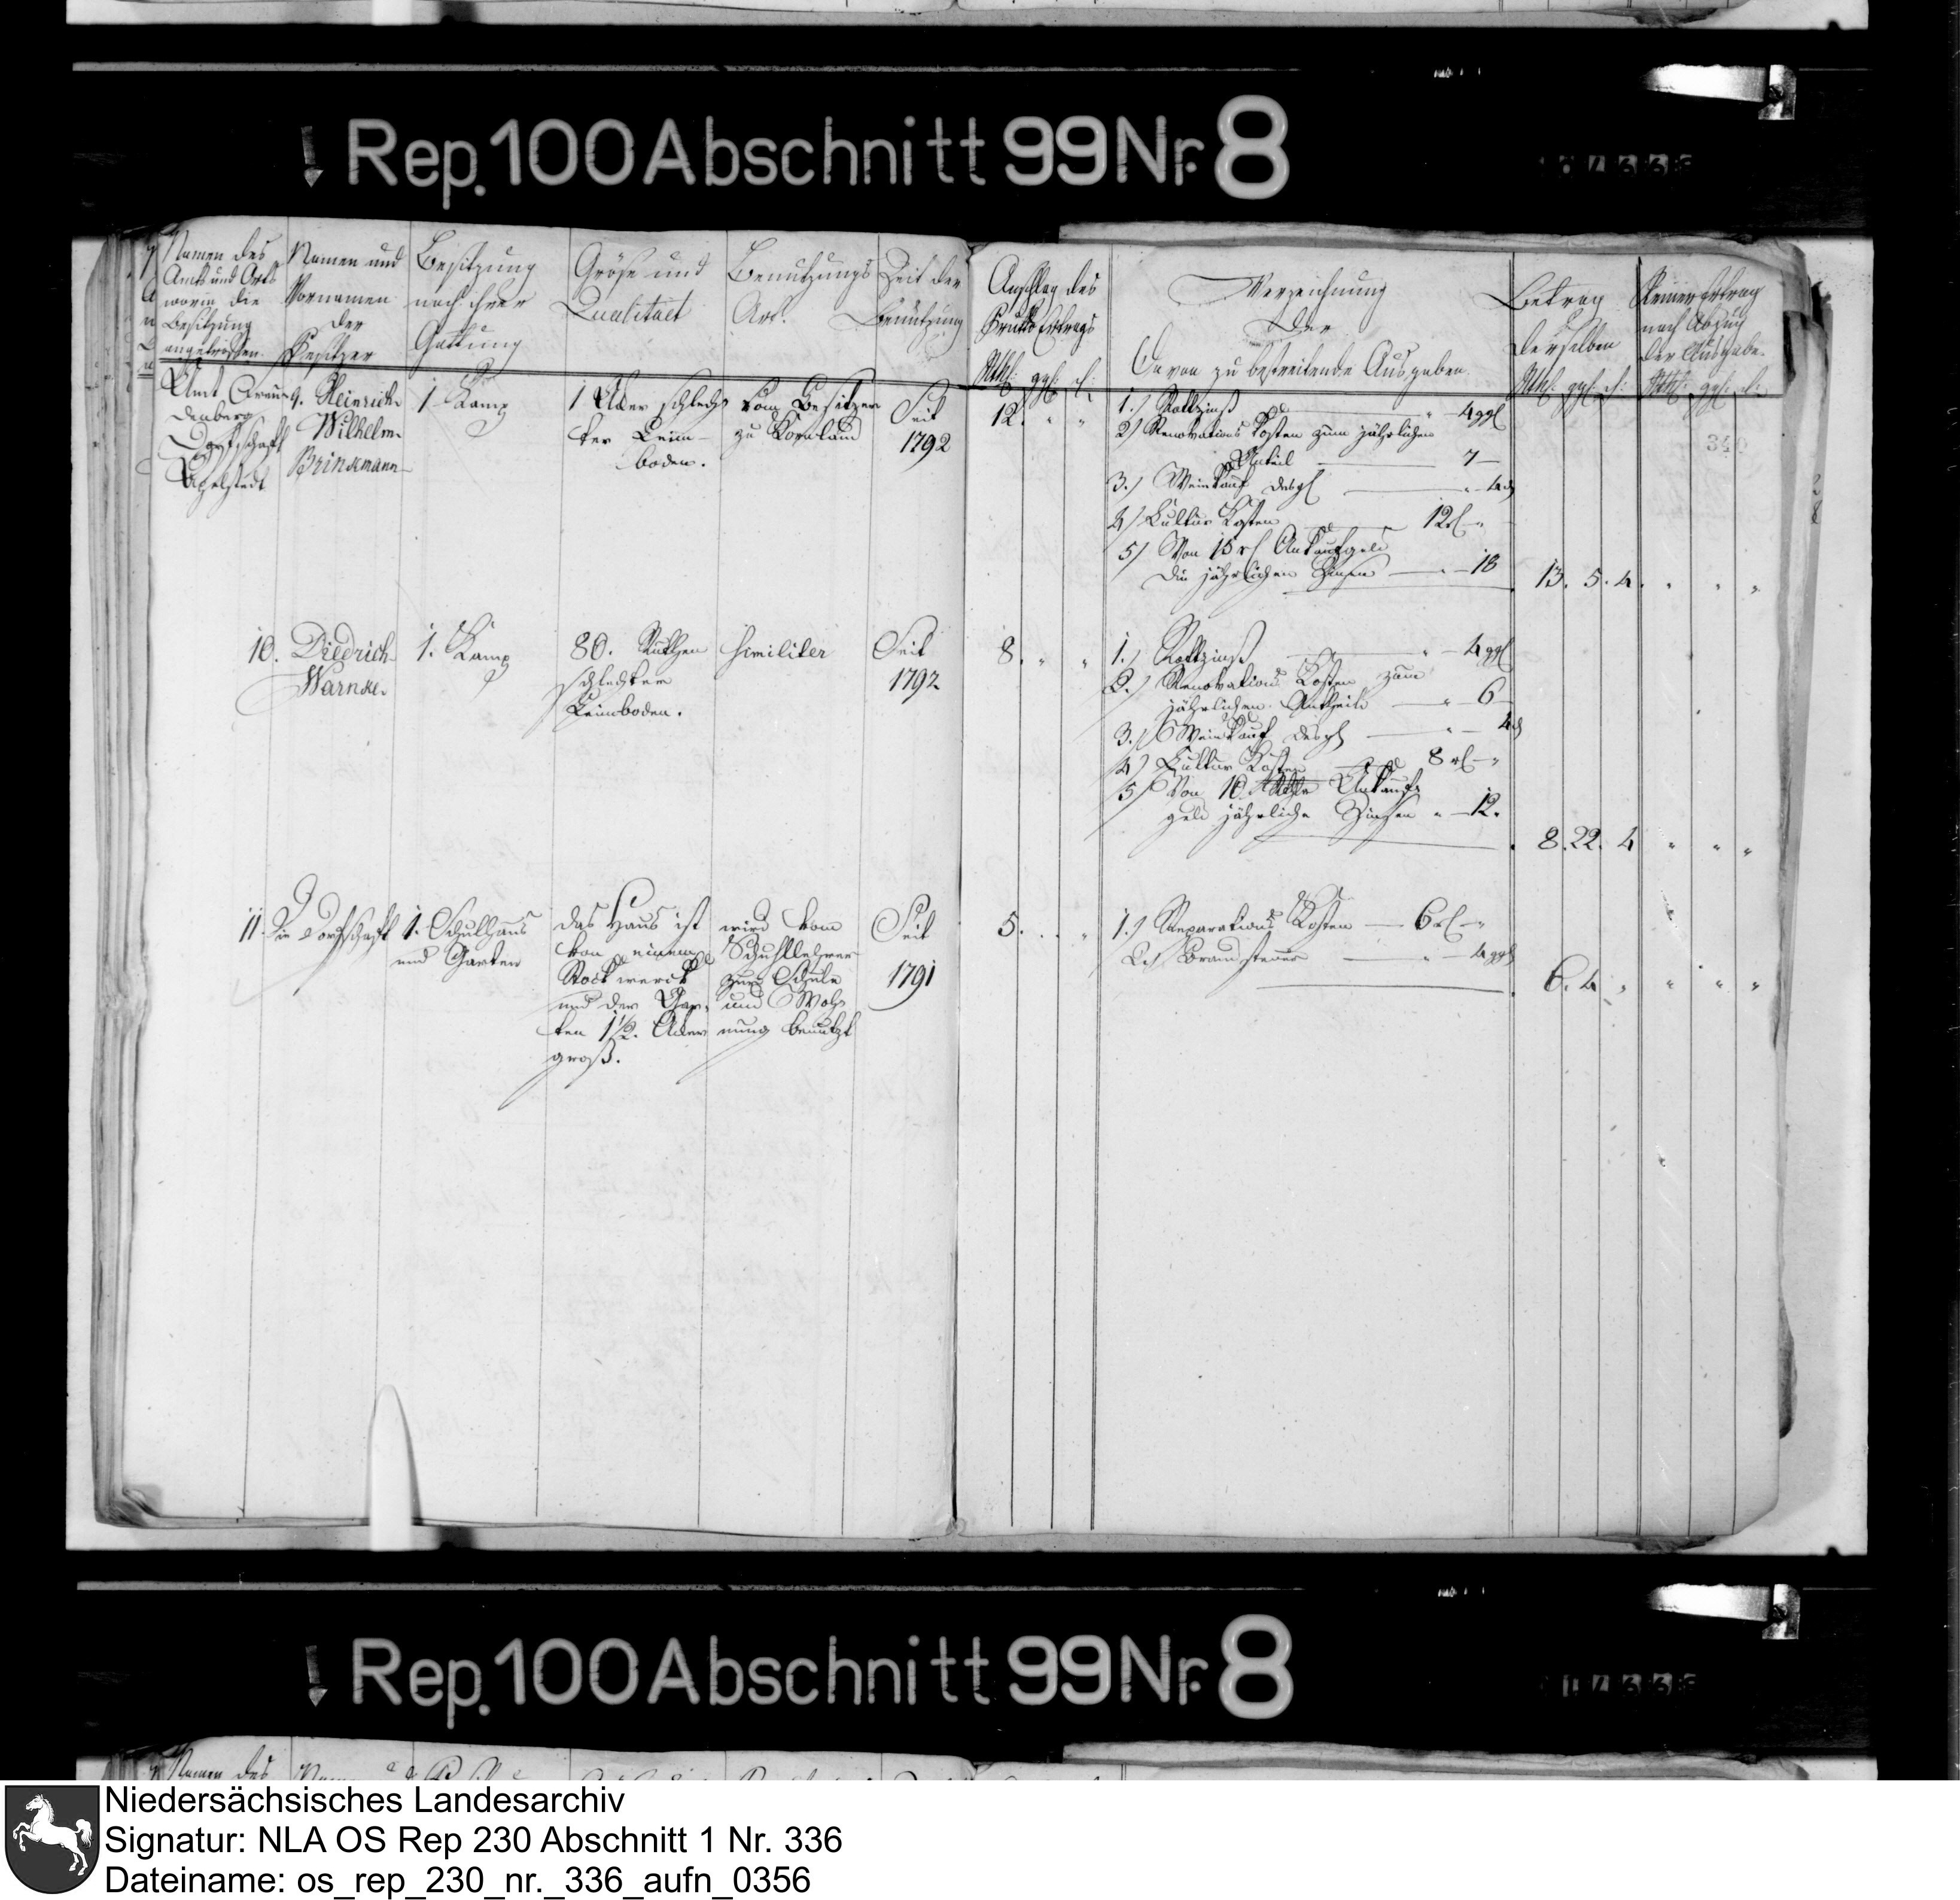 Rep. 100 Abschnitt 99 Nr. 8
Namen des
Amts und Orts
worin die
Besitzung
angetroffen.
Namen und
Vornamen
der
Besitzer
Besitzung
nach ihrer
Gattung
Größe und
Qualitaet
Benutzungs
Art.
Zeit der
Benutzung
Anschlag des
Brutto Ertrags
Rthl: ggl: d:
Verzeichnung
der
davon zu bestreitende Ausgaben.
Betrag
derselben
Rthl: ggl: d:
Reiner Ertrag
nach Abzug
der Ausgabe.
Rthl: ggl: d:
340
Amt
denberg
Dorfschaft
9. Heinrich
Wilhelm
Brinkmann
1 Kamp
1 Aker schlech
ter Leim-
boden.
vom Besitzer
zu Kornland
Seit
1792
12. " "
1.) Rottzinß " 4 ggl
2) Renovations Kosten zum jährlichen
Anteil 7
3.) Weinkauf desgl " 4 d
4) Cultur Kosten 12 rl "
5) Von 15 rl Ankaufgeld
die jährlichen Zinsen " 18
13. 5. 4. " " "
10. Diedrich
Warnke.
1. Kamp
80. Ruthen
schlechter
Leimboden.
similiter
Seit
1792
8. " "
1.) Rottzinß " 4 ggl
2.) Renovations Kosten zum
jährlichen Antheile " 6
3.) Weinkauf desgl " 4 d
4) Cultur Kosten 8 rl "
5) Von 10 Rthlr Ankauf-
geld jährliche Zinsen " 12.
8. 22. 4 " " "
11. Die Dorfschaft
1. Schulhaus
und Garten
das Haus ist
von einem
Stockwerck
und der Gar-
ten 1 1/2. Aker
groß.
wird vom
Schullehrer
zur Schule
und Woh
nung benutzt
Seit
1791
5. " "
1.) Reparations Kosten 6 rl "
2.) Brandsteuer " 4 ggl
6. 4 " " " "
Rep. 100 Abschnitt 99 Nr. 8
Namen des
Niedersächsisches Landesarchiv
Signatur: NLA OS Rep 230 Abschnitt 1 Nr. 336
Dateiname: os_rep_230_nr._336_aufn_0356